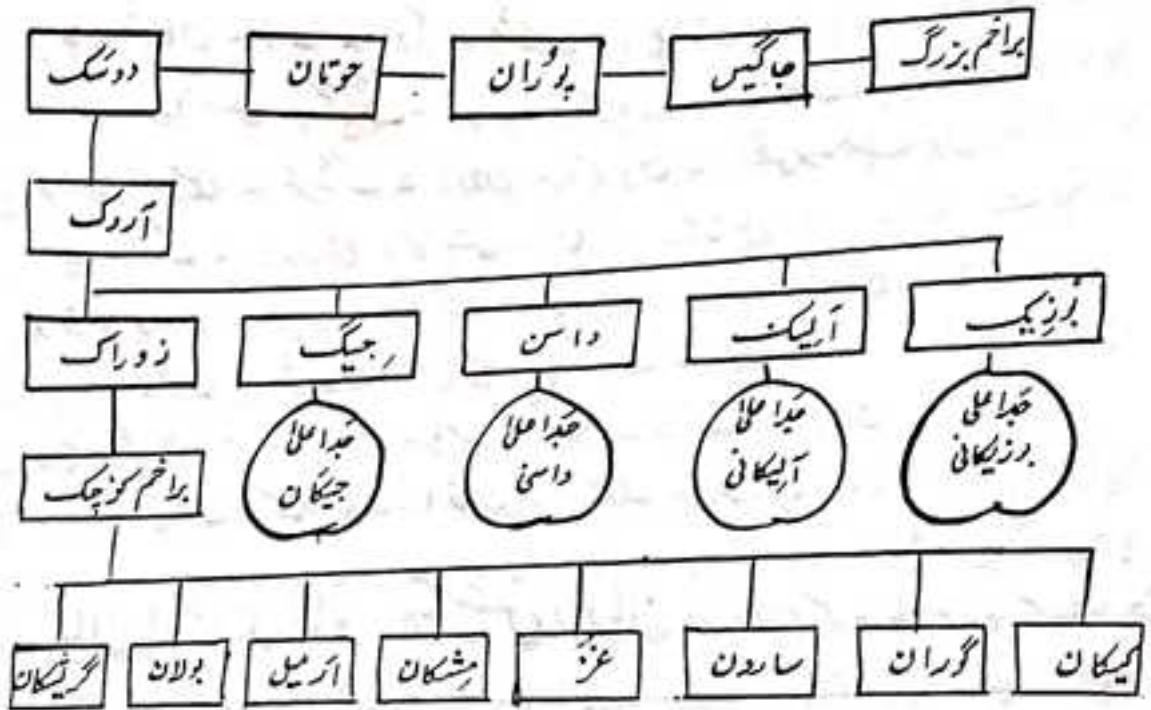 براخم بزرگ
جاگیس
پوران
حوتان
دوسک
آردک
بُرزیک
آریسک
داسن
رجیگ
زوراک
جداعلی
برزیکانی
جداعلیٰ
آریکانی
جداعلیٰ
داسنی
جداعلیٰ
جیگان
براخم کوچک
کیکان
گوران
سارون
عزّ
مِشکان
ارمیل
بولان
گرشیکان